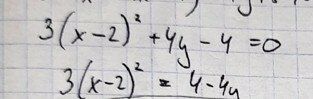 3(x-2)² + 4y - 4 = 0
3(x-2)² = 4 - 4y